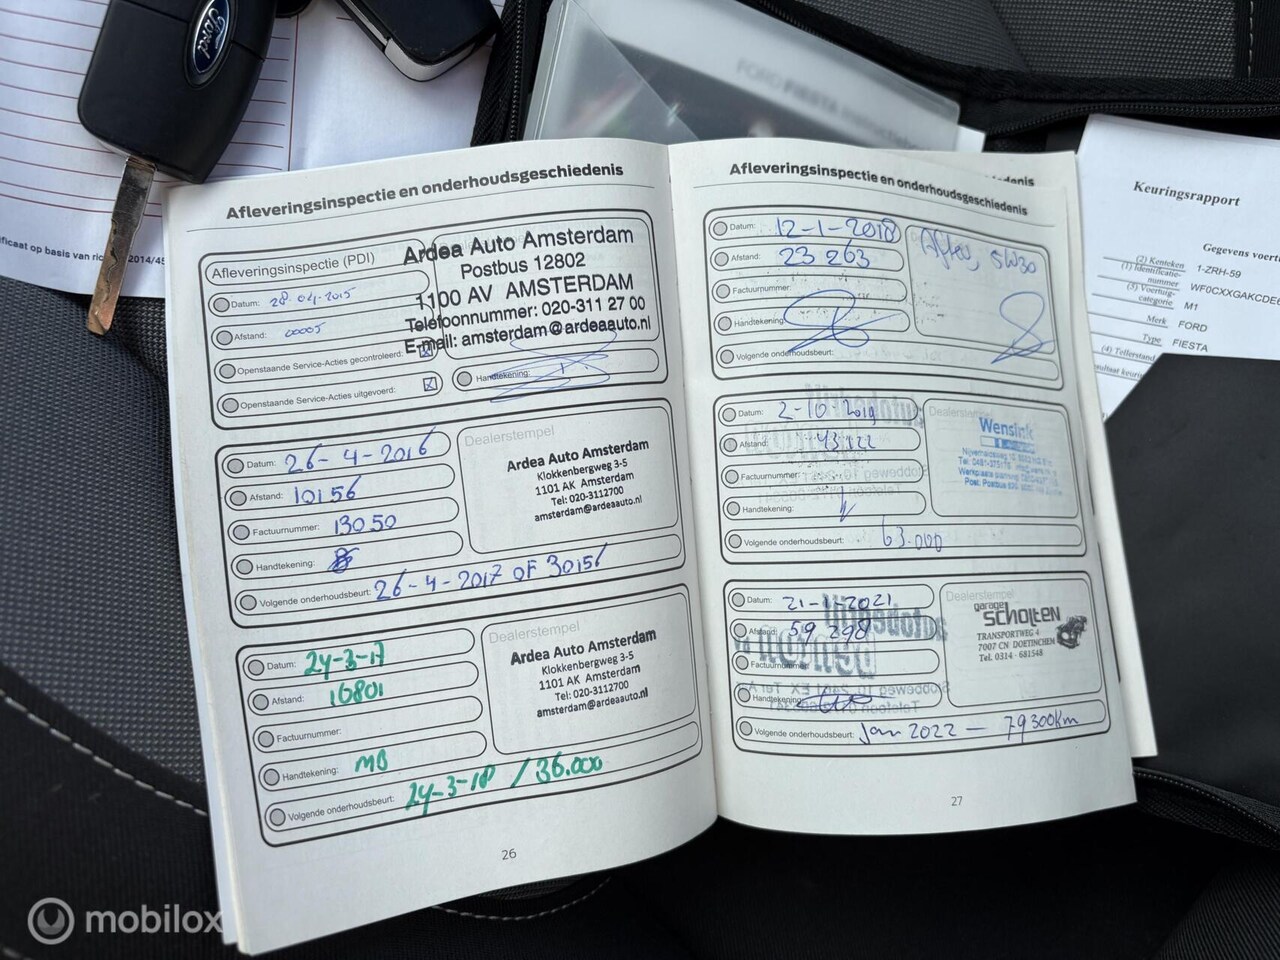 Ford
FORD FIESTA
Afleveringsinspectie en onderhoudsgeschiedenis
Afleveringsinspectie (PDI)
Datum: 28-04-2015
Afstand: 00005
Openstaande Service-Acties gecontroleerd:
Openstaande Service-Acties uitgevoerd:
Ardea Auto Amsterdam
Postbus 12802
1100 AV AMSTERDAM
Telefoonnummer: 020-311 27 00
E-mail: amsterdam@ardeaauto.nl
Handtekening:
Datum: 26-4-2016
Afstand: 10156
Factuurnummer: 13050
Handtekening:
Volgende onderhoudsbeurt: 26-4-2017 OF 30156
Dealerstempel
Ardea Auto Amsterdam
Klokkenbergweg 3-5
1101 AK Amsterdam
Tel: 020-3112700
amsterdam@ardeaauto.nl
Datum: 24-3-17
Afstand: 16801
Factuurnummer:
Handtekening: MB
Volgende onderhoudsbeurt: 24-3-18 / 36.000
Dealerstempel
Ardea Auto Amsterdam
Klokkenbergweg 3-5
1101 AK Amsterdam
Tel: 020-3112700
amsterdam@ardeaauto.nl
26
Afleveringsinspectie en onderhoudsgeschiedenis
Datum: 12-1-2018
Afstand: 23263
Factuurnummer:
Handtekening:
Volgende onderhoudsbeurt:
5W30
Datum: 2-10-2019
Afstand: 43122
Factuurnummer:
Handtekening:
Volgende onderhoudsbeurt: 63.000
Dealerstempel
Wensink
Datum: 21-1-2021
Afstand: 59298
Factuurnummer:
Handtekening:
Volgende onderhoudsbeurt: Jan 2022 - 79300km
Dealerstempel
garage
SCHOLTEN
TRANSPORTWEG 4
7007 CN DOETINCHEM
Tel. 0314 - 681548
27
Keuringsrapport
Gegevens
(2) Kenteken 1-ZRH-59
(1) Identificatie-
nummer WF0CXXGAKCDE
(5) Voertuig-
categorie M1
Merk FORD
Type FIESTA
(4) Tellerstand
ificaat op basis van
2014/45
mobilox